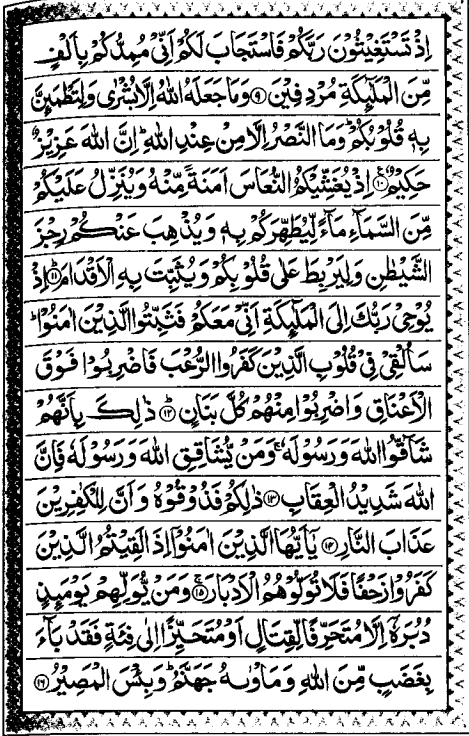 اِذۡ تَسۡتَغِيۡثُوۡنَ رَبَّكُمۡ فَاسۡتَجَابَ لَكُمۡ اَنِّىۡ مُمِدُّكُمۡ بِاَلۡفٍ
مِّنَ الۡمَلٰٓٮِٕكَةِ مُرۡدِفِيۡنَ ﴿۹﴾ وَمَا جَعَلَهُ اللّٰهُ اِلَّا بُشۡرٰى وَلِتَطۡمَٮِٕنَّ
بِهٖ قُلُوۡبُكُمۡ‌ؕ وَمَا النَّصۡرُ اِلَّا مِنۡ عِنۡدِ اللّٰهِ‌ؕ اِنَّ اللّٰهَ عَزِيۡزٌ
حَكِيۡمٌ ﴿۱۰﴾ اِذۡ يُغَشِّيۡكُمُ النُّعَاسَ اَمَنَةً مِّنۡهُ وَيُنَزِّلُ عَلَيۡكُمۡ
مِّنَ السَّمَآءِ مَآءً لِّيُطَهِّرَكُمۡ بِهٖ وَيُذۡهِبَ عَنۡكُمۡ رِجۡزَ
الشَّيۡطٰنِ وَلِيَرۡبِطَ عَلٰى قُلُوۡبِكُمۡ وَيُثَبِّتَ بِهِ الۡاَقۡدَامَؕ ﴿۱۱﴾ اِذۡ
يُوۡحِىۡ رَبُّكَ اِلَى الۡمَلٰٓٮِٕكَةِ اَنِّىۡ مَعَكُمۡ فَثَبِّتُوا الَّذِيۡنَ اٰمَنُوۡا‌ؕ
سَاُلۡقِىۡ فِىۡ قُلُوۡبِ الَّذِيۡنَ كَفَرُوا الرُّعۡبَ فَاضۡرِبُوۡا فَوۡقَ
الۡاَعۡنَاقِ وَاضۡرِبُوۡا مِنۡهُمۡ كُلَّ بَنَانٍؕ ﴿۱۲﴾ ذٰ لِكَ بِاَنَّهُمۡ
شَآقُّوا اللّٰهَ وَرَسُوۡلَهٗ‌ۚ وَمَنۡ يُّشَاقِقِ اللّٰهَ وَرَسُوۡلَهٗ فَاِنَّ
اللّٰهَ شَدِيۡدُ الۡعِقَابِ ﴿۱۳﴾ ذٰ لِكُمۡ فَذُوۡقُوۡهُ وَاَنَّ لِلۡكٰفِرِيۡنَ
عَذَابَ النَّارِ ﴿۱۴﴾ يٰۤاَيُّهَا الَّذِيۡنَ اٰمَنُوۡۤا اِذَا لَقِيۡتُمُ الَّذِيۡنَ
كَفَرُوۡا زَحۡفًا فَلَا تُوَلُّوۡهُمُ الۡاَدۡبَارَ‌ۚ ﴿۱۵﴾ وَمَنۡ يُّوَلِّهِمۡ يَوۡمَٮِٕذٍ
دُبُرَهٗۤ اِلَّا مُتَحَرِّفًا لِّقِتَالٍ اَوۡ مُتَحَيِّزًا اِلٰى فِئَةٍ فَقَدۡ بَآءَ
بِغَضَبٍ مِّنَ اللّٰهِ وَمَاۡوٰٮهُ جَهَنَّمُ‌ؕ وَبِئۡسَ الۡمَصِيۡرُ ﴿۱۶﴾